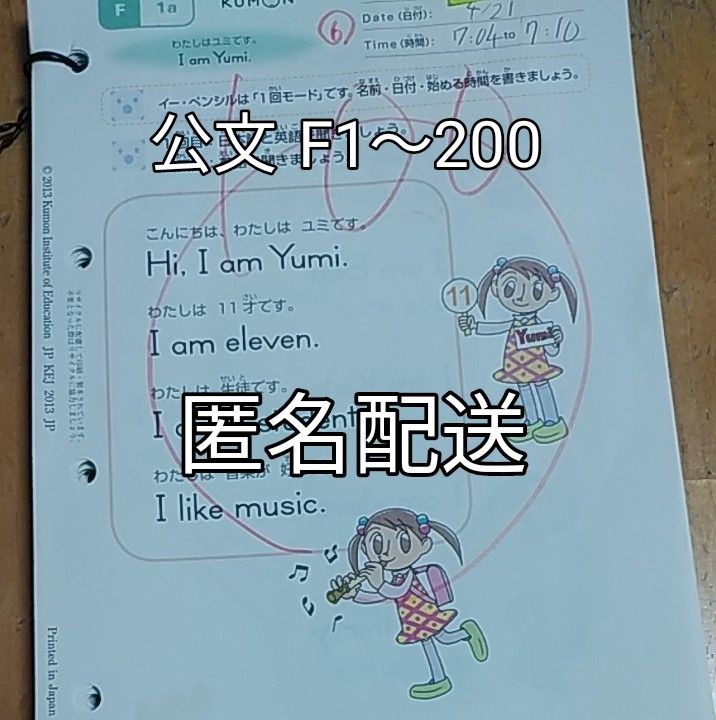 F 1a
KUMON
⑥
Date (日付): 4/21
Time (時間): 7:04 to 7:10
わたしはユミです。
I am Yumi.
100
イー・ペンシルは「1回モード」です。名前・日付・始める時間を書きましょう。
公文 F1〜200
こんにちは、わたしは ユミです。
Hi, I am Yumi.
わたしは 11才です。
I am eleven.
わたしは 生徒です。
匿名配送
I like music.
11
Yumi
© 2013 Kumon Institute of Education JP KEJ 2013 JP
Printed in Japan